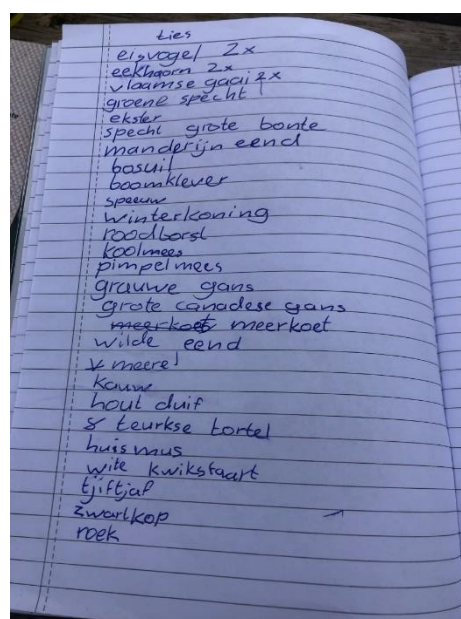 Lies
eisvogel 2x
eekhoorn 2x
vlaamse gaai 2x
groene specht 1
ekster
specht grote bonte
manderijn eend
bosuil
boomklever
speeuw
winterkoning
roodborst
koolmees
pimpelmees
grauwe gans
grote canadese gans
meerkoet meerkoet
wilde eend
meerel
kauw
hout duif
teurkse tortel
huismus
wite kwikstaart
tjiftjaf
zwartkop
roek